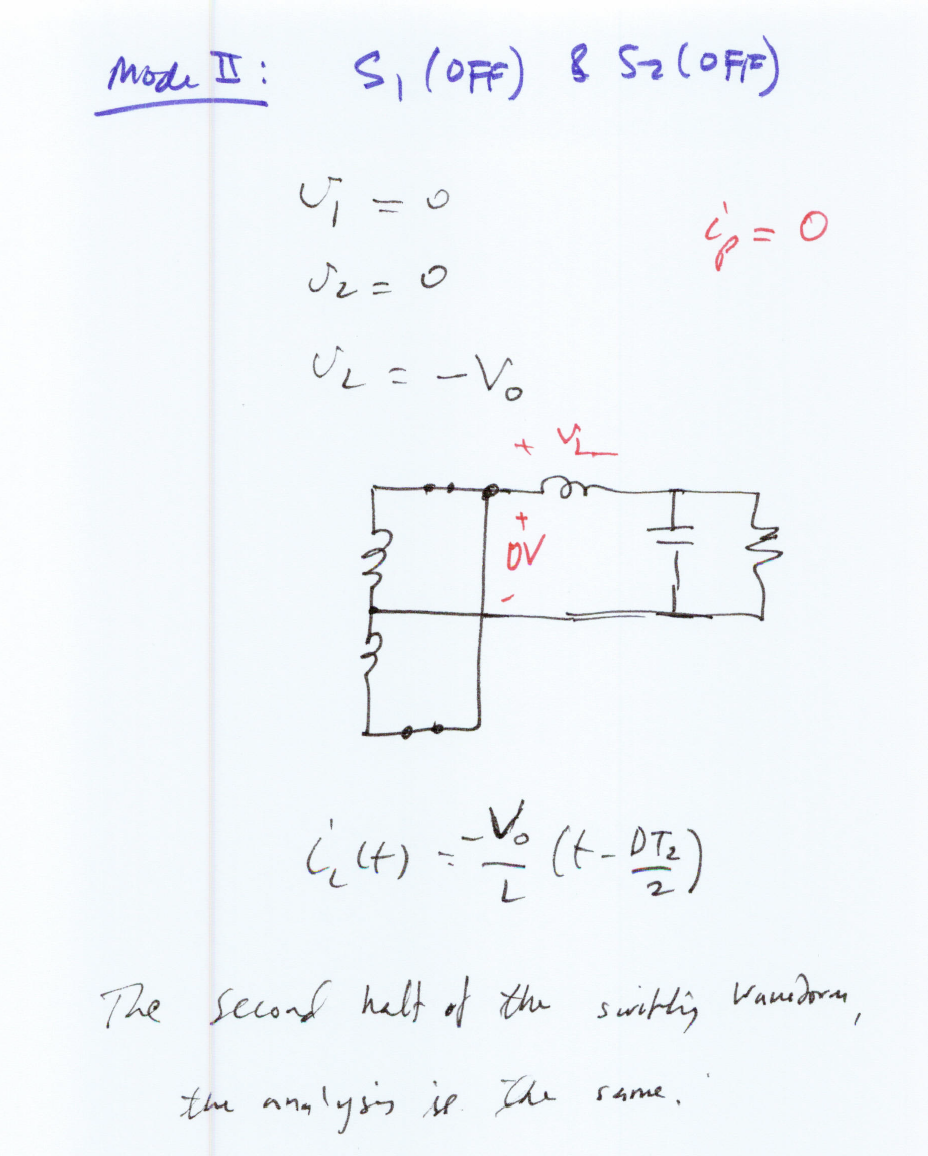 Mode II: S1 (OFF) & S2 (OFF)
v1 = 0
ip = 0
v2 = 0
vL = -Vo
+ vL
+
0V
-
iL(t) = -Vo/L (t - DT2/2)
The second half of the switching waveform,
the analysis is the same.